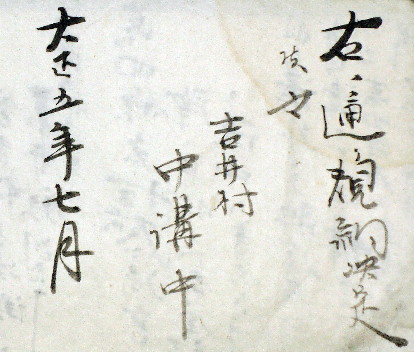 右ノ通規約決定
候也
吉井村
中講中
大正五年七月